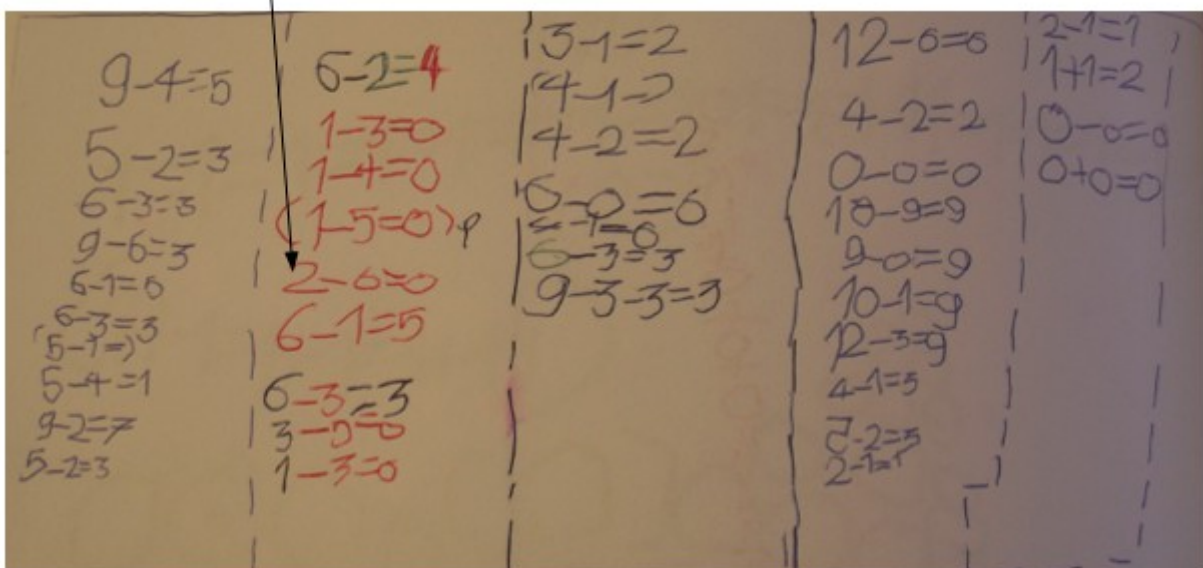 9-4=5
5-2=3
6-3=3
9-6=3
6-1=5
6-3=3
(5-1=)
5-4=1
9-2=7
5-2=3
6-2=4
1-3=0
1-4=0
(1-5=0)
2-6=0
6-1=5
6-3=3
3-0=0
1-3=0
3-1=2
4-2=2
6-0=6
6-3=3
9-3-3=3
12-6=6
4-2=2
0-0=0
18-9=9
9-0=9
10-1=9
12-3=9
4-1=3
5-2=3
2-1=1
2-1=1
1+1=2
0-0=0
0+0=0